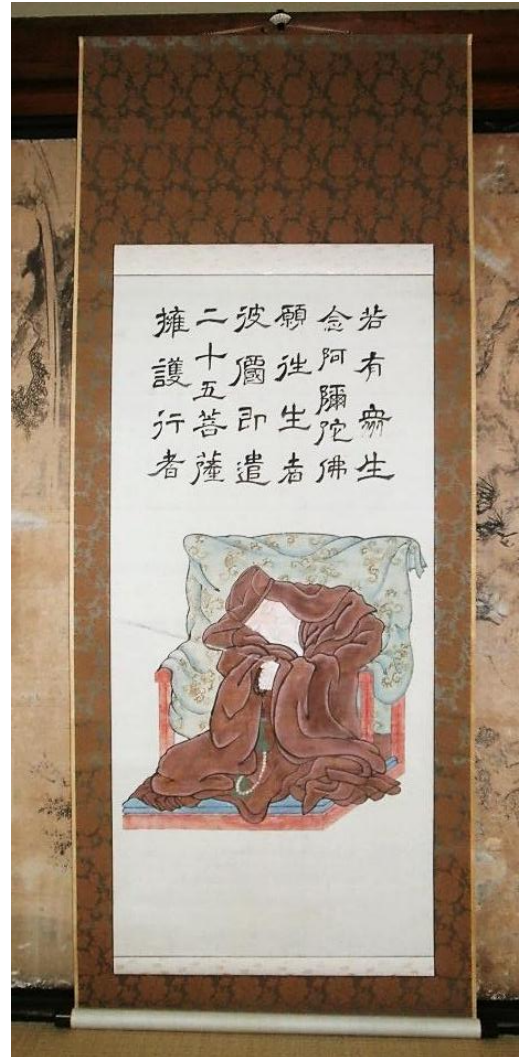 若有衆生
念阿彌陀佛
願往生者
彼國即遣
二十五菩薩
擁護行者